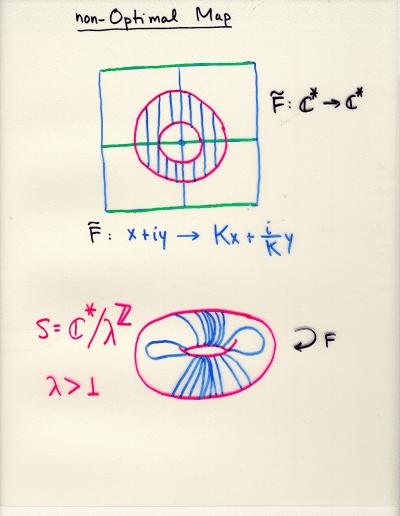 non-Optimal Map
F̃: ℂ* → ℂ*
F̃: x+iy → Kx + i/K y
S = ℂ*/λ^ℤ
λ > 1
F